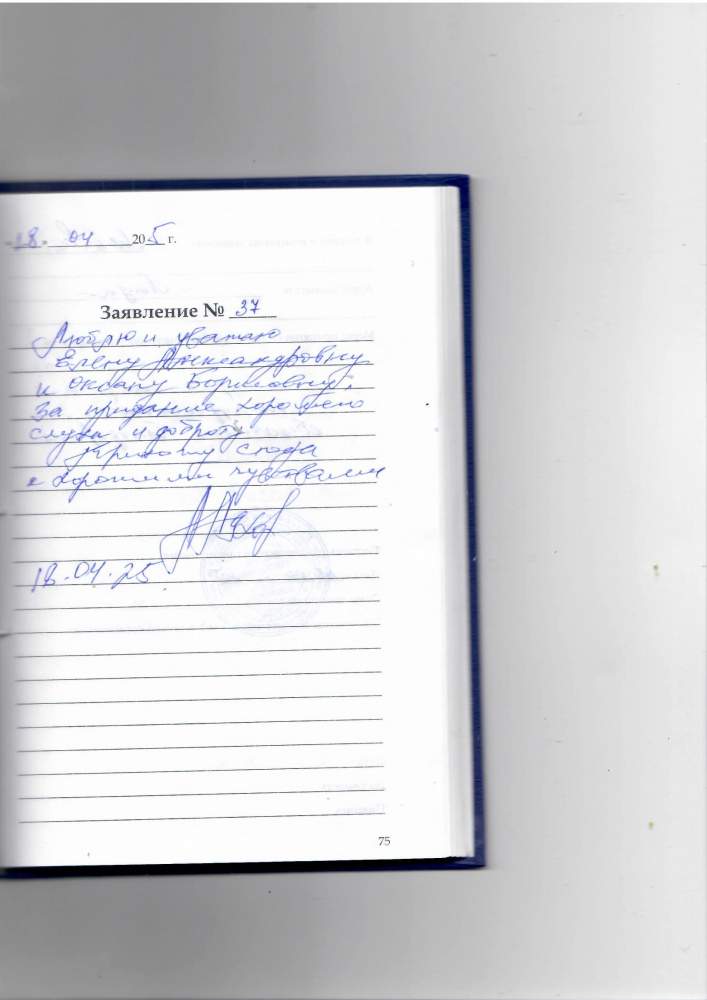 «18» 04 20 5 г.
Заявление № 37
Люблю и уважаю
Елену Александровну
и Оксану Борисовну.
За придание хорошего
слуха и доброту
Прихожу сюда
с хорошими чувствами
18.04.25
75